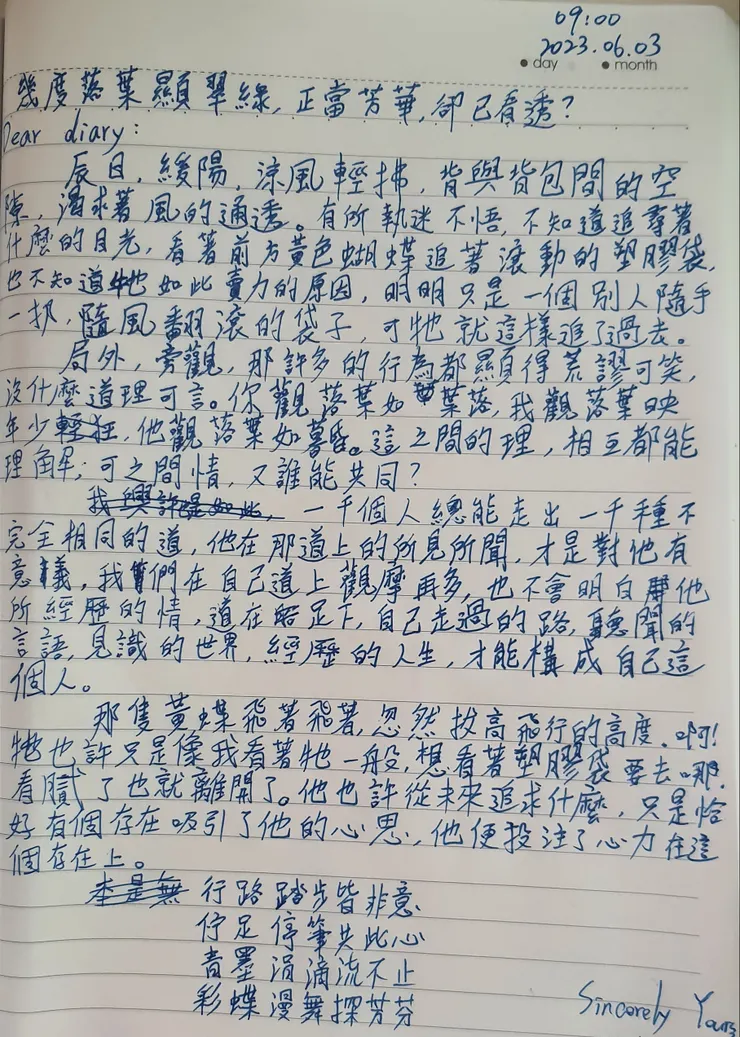 09:00
2023.06.03
day month
幾度落葉顯翠綠，正當芳華，卻已看透？
Dear diary:
辰日，緩陽，涼風輕拂，背與背包間的空
隙，渴求著風的通透。有所執迷不悟，不知道追尋著
什麼的目光，看著前方黃色蝴蝶追著滾動的塑膠袋，
也不知道牠如此賣力的原因，明明只是一個別人隨手
一扔，隨風翻滾的袋子，可牠就這樣追了過去。
局外，旁觀，那許多的行為都顯得荒謬可笑，
沒什麼道理可言。你觀落葉如葉落，我觀落葉映
年少輕狂，他觀落葉如暮昏。這之間的理，相互都能
理解；可之間情，又誰能共同？
我與許是如此，一千個人總能走出一千種不
完全相同的道，他在那道上的所見所聞，才是對他有
意義，我們在自己道上觀摩再多，也不會明白他
所經歷的情，道在足下，自己走過的路，聽聞的
言語，見識的世界，經歷的人生，才能構成自己這
個人。
那隻黃蝶飛著飛著，忽然拔高飛行的高度。啊！
牠也許只是像我看著牠一般，想看著塑膠袋要去哪，
看膩了也就離開了。他也許從未來追求什麼，只是恰
好有個存在吸引了他的心思，他便投注了心力在這
個存在上。
本是無 行路踏步皆非意
佇足停筆共此心
青墨涓滴流不止
彩蝶漫舞探芳芬
Sincerely Yours